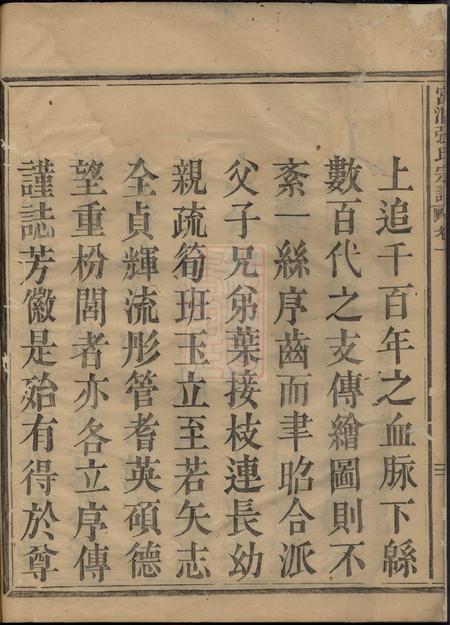 張氏宗譜
卷一
上追千百年之血脉下緜
數百代之支傳繪圖則不
紊一絲序齒而聿昭合派
父子兄弟葉接枝連長幼
親疏筍班玉立至若矢志
全貞輝流彤管耆英碩德
望重枌閭者亦各立序傳
謹誌芳徽是殆有得於尊